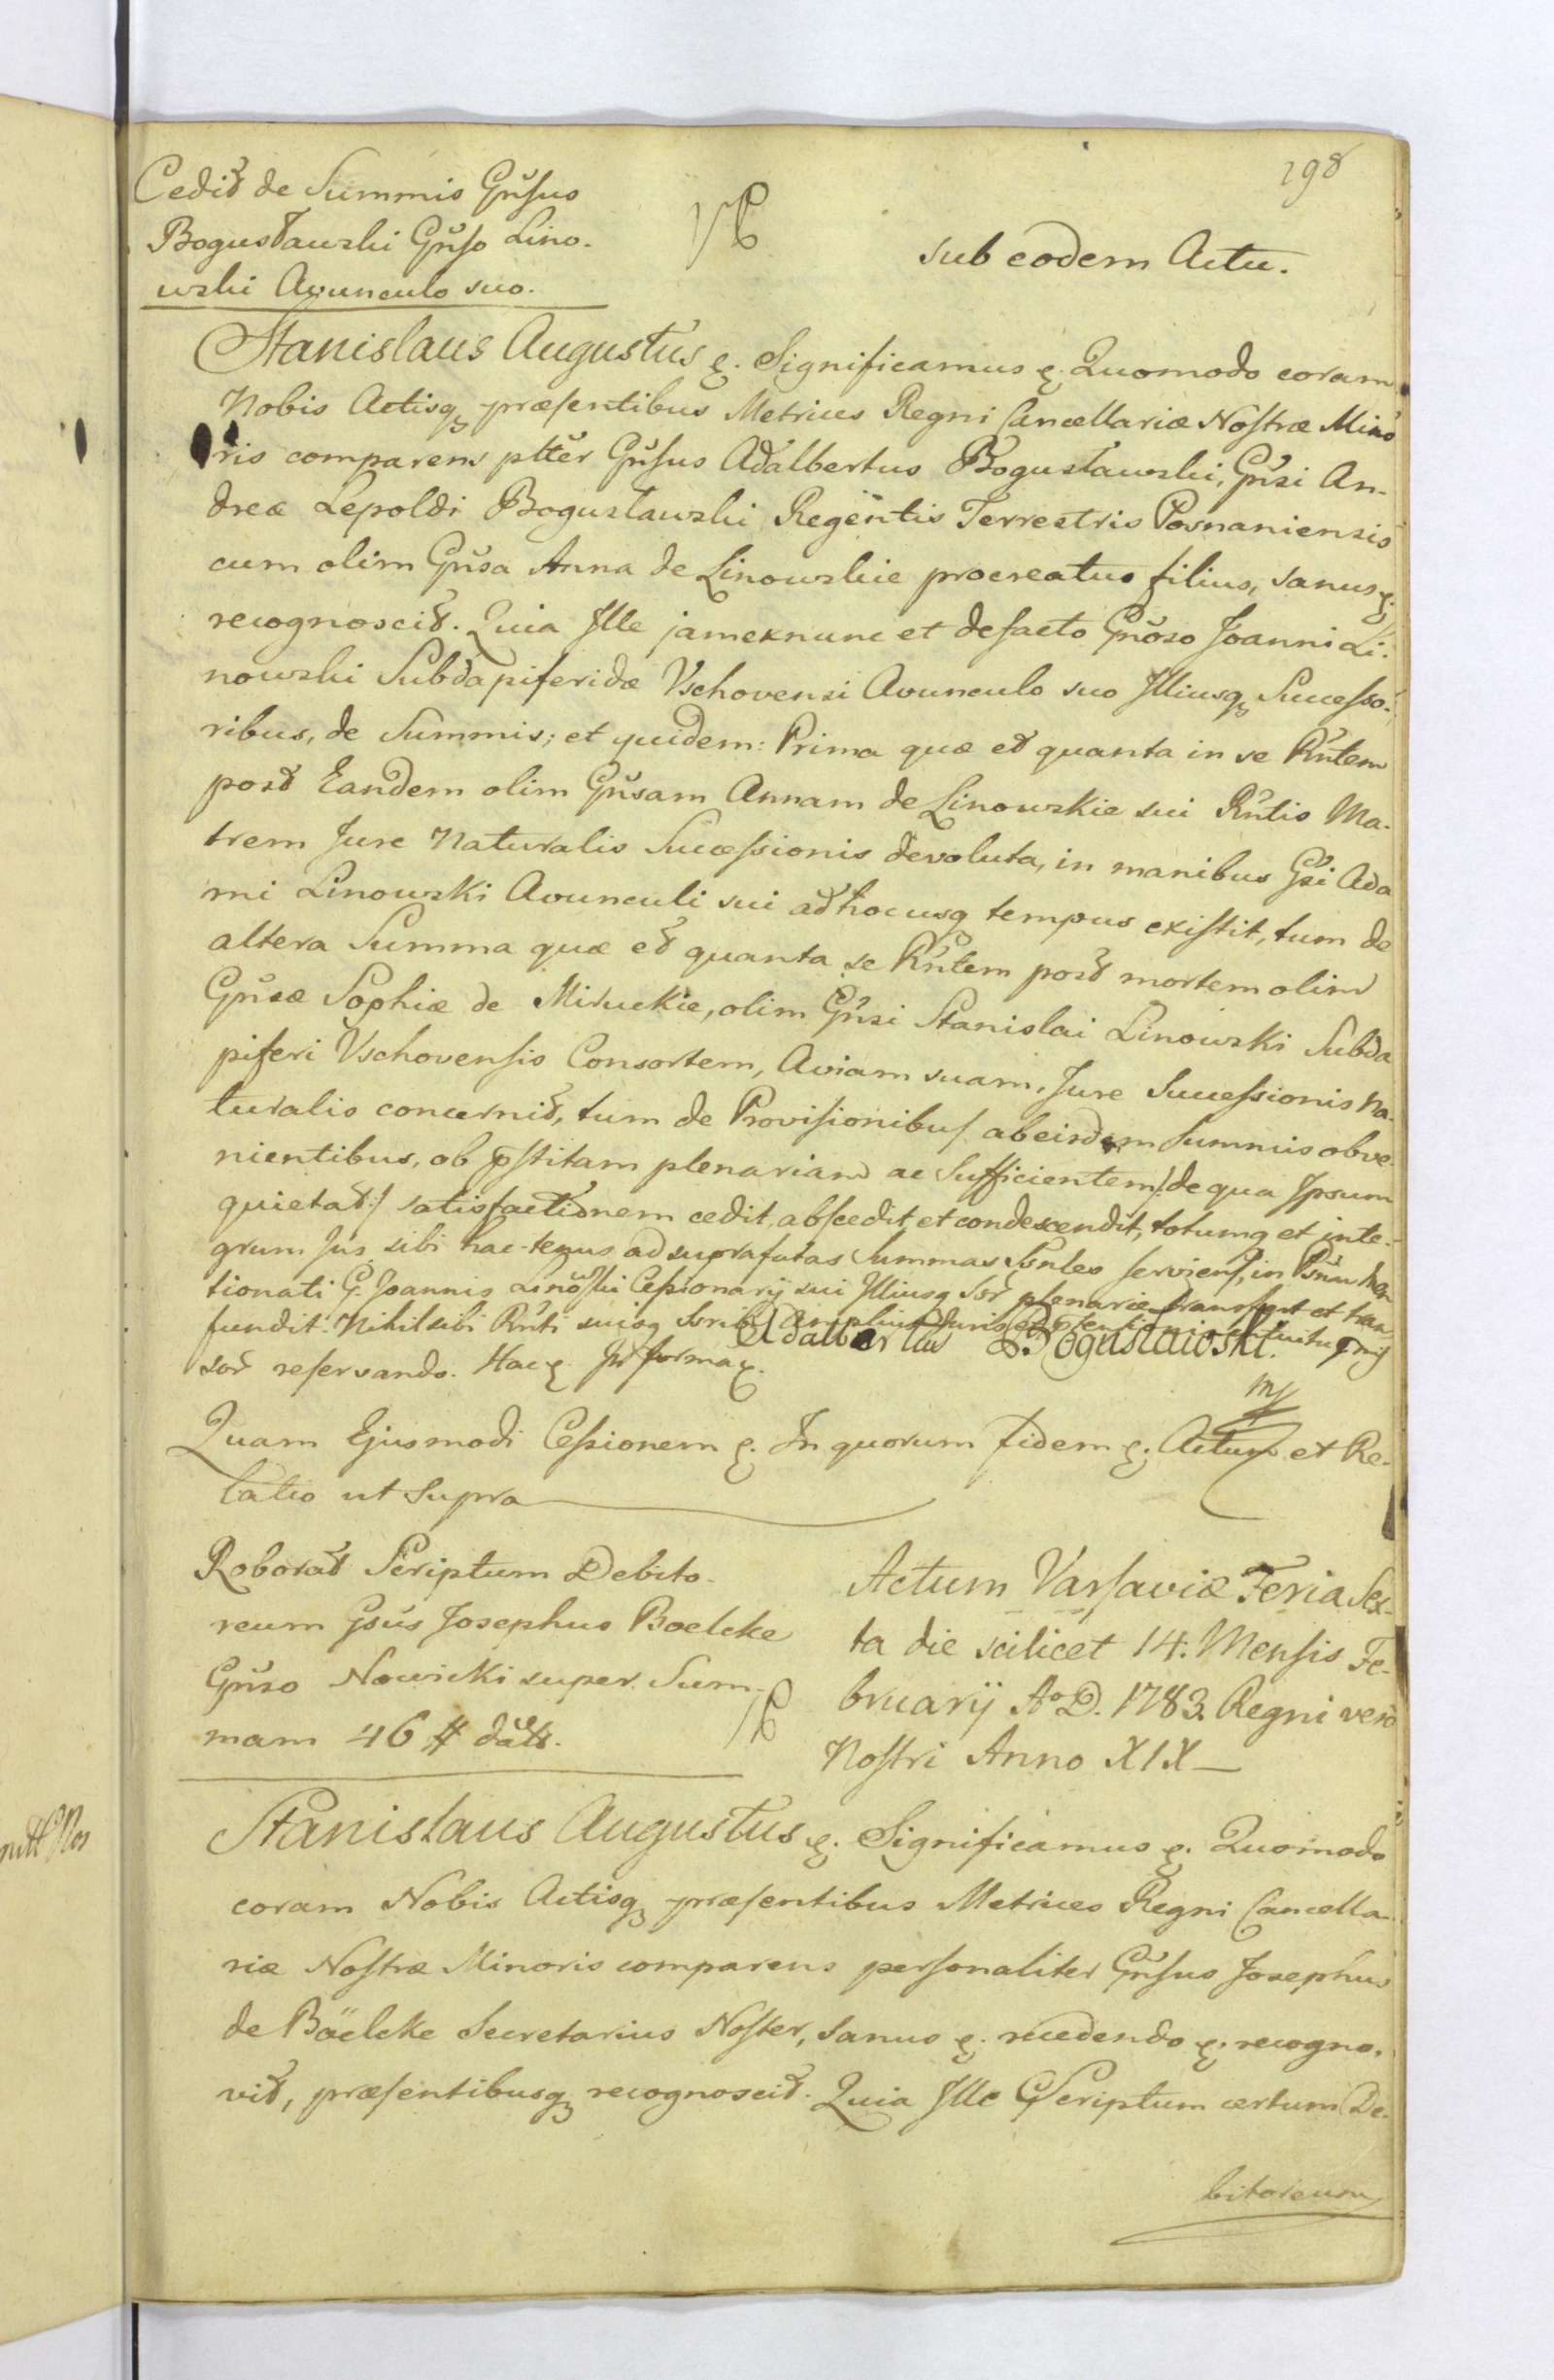 198
Cedit de Summis Gnsus
Bogusławski Gnso Lino-
wski Avunculo suo.
sub eodem Actu.
Stanislaus Augustus &. Significamus &. Quomodo coram
Nobis Actisq præsentibus Metrices Regni Cancellariæ Nostræ Mino
ris comparens ptter Gnsus Adalbertus Bogusławski, Gnsi An-
dreæ Lepoldi Bogusławski Regentis Terrestris Posnaniensis
cum olim Gnsa Anna de Linowskie procreatus filius, sanus &.
recognoscit. Quia Ille jamexnunc et defacto Gnoso Joanni Li-
nowski Subdapiferidæ Vschovensi Avunculo suo Illiusq Successo-
ribus, de Summis; et quidem: Prima quæ et quanta in se Rntem
post Eandem olim Gnsam Annam de Linowskie sui Rntis Ma-
trem Jure Naturalis Successionis devoluta, in manibus Gsi Ada
mi Linowski Avunculi sui adhocusq tempus existit, tum de
altera Summa quæ et quanta se Rntem post mortem olim
Gnsæ Sophiæ de Miruckie, olim Gnsi Stanislai Linowski Subda
piferi Vschovensis Consortem, Aviam suam, Jure Successionis Na-
turalis concernit, tum de Provisionibus abeisdem Summis obve-
nientibus, ob pstitam plenariam ac Sufficientem /: de qua Ipsum
quietat :/ satisfactionem cedit, abscedit, et condescendit, totumq et inte-
grum Jus sibi hac-tenus ad suprafatas Summas serviens, in
tionati G. Joannis Linowski Cessionarij sui Illiusq Sor plenarie transfert et trans
fundit. Nihil sibi Rnti suisq Sorib amplius Juris
sor reservando. Hac &. In forma &.
Adalbertus Bogusławski.
mp
Quam Ejusmodi Cessionem &. In quorum fidem &. Actum et Re-
latio ut supra
Roborat Scriptum Debito-
reum Gsus Josephus Boelcke
Gnso Nowicki super Sum-
mam 46 # datt.
Actum Varsaviæ Feria Sex-
ta die scilicet 14. Mensis Fe-
bruarij Ao D. 1783. Regni vero
Nostri Anno XIX
Stanislaus Augustus &. Significamus &. Quomodo
coram Nobis Actisq præsentibus Metrices Regni Cancella-
riæ Nostræ Minoris comparens personaliter Gnsus Josephus
de Böelcke Secretarius Noster, sanus &. recedendo &. recogno-
vit, præsentibusq recognoscit. Quia Ille Scriptum certum De-
bitoreum